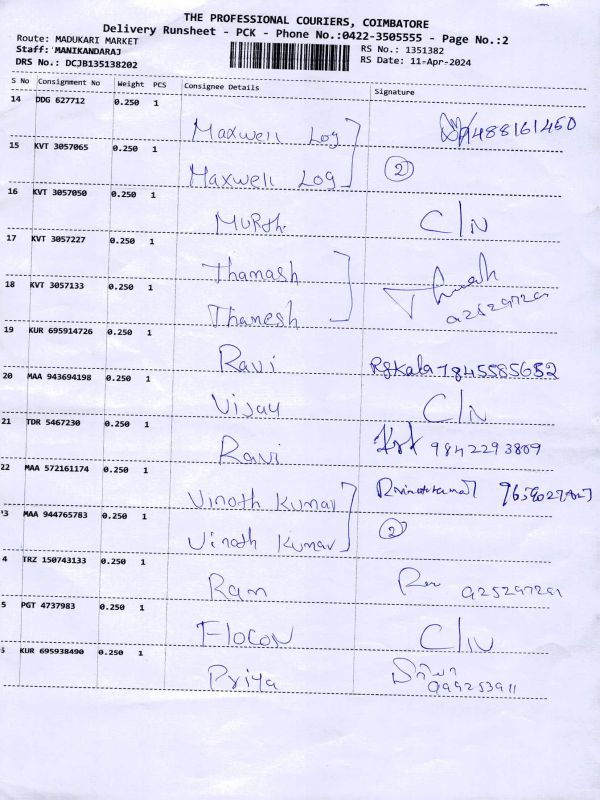 THE PROFESSIONAL COURIERS, COIMBATORE
Delivery Runsheet - PCK - Phone No.:0422-3505555 - Page No.:2
Route: MADUKARI MARKET
RS No.: 1351382
Staff: MANIKANDARAJ
RS Date: 11-Apr-2024
DRS No.: DCJB135138202
S No Consignment No Weight PCS Consignee Details Signature
14 DDG 627712 0.250 1
Maxwell Log 9488161450
15 KVT 3057065 0.250 1
Maxwell Log 2
16 KVT 3057050 0.250 1
Murth. C/N
17 KVT 3057227 0.250 1
Thamash
18 KVT 3057133 0.250 1
Thamesh
19 KUR 695914726 0.250 1
Ravi Rgkala 7845585652
20 MAA 943694198 0.250 1
Vijay C/N
21 TDR 5467230 0.250 1
Ravi 9842293809
22 MAA 572161174 0.250 1
Vinoth Kumar
3 MAA 944765783 0.250 1
Vinoth Kumar 2
4 TRZ 150743133 0.250 1
Ram
5 PGT 4737983 0.250 1
Flocon C/N
KUR 695938490 0.250 1
Priya